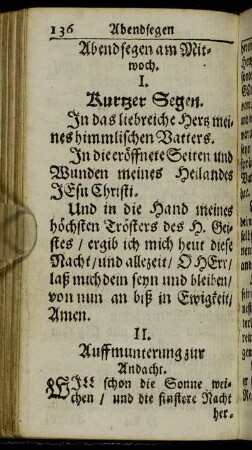 136 Abendsegen
Abendsegen am Mit-
woch.
I.
Kurtzer Segen.
In das liebreiche Hertz mei-
nes himmlischen Vatters.
In die eröffnete Seiten und
Wunden meines Heilandes
JEsu Christi.
Und in die Hand meines
höchsten Trösters des H. Gei-
stes / ergib ich mich heut diese
Nacht / und allezeit / O HErr /
laß mich dein seyn und bleiben /
von nun an biß in Ewigkeit /
Amen.
II.
Auffmunterung zur
Andacht.
WIll schon die Sonne wei-
chen / und die finstere Nacht
her-